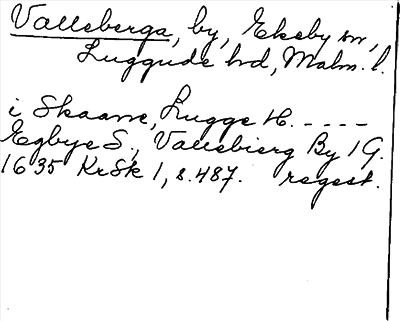 Valleberga, by, Ekeby sn,
Luggude hd, Malm. l.
i Skaane, Lugge H. ----
Egbye S., Vallebierg By 1 G.
1635 KrSk 1, s. 487. regest.